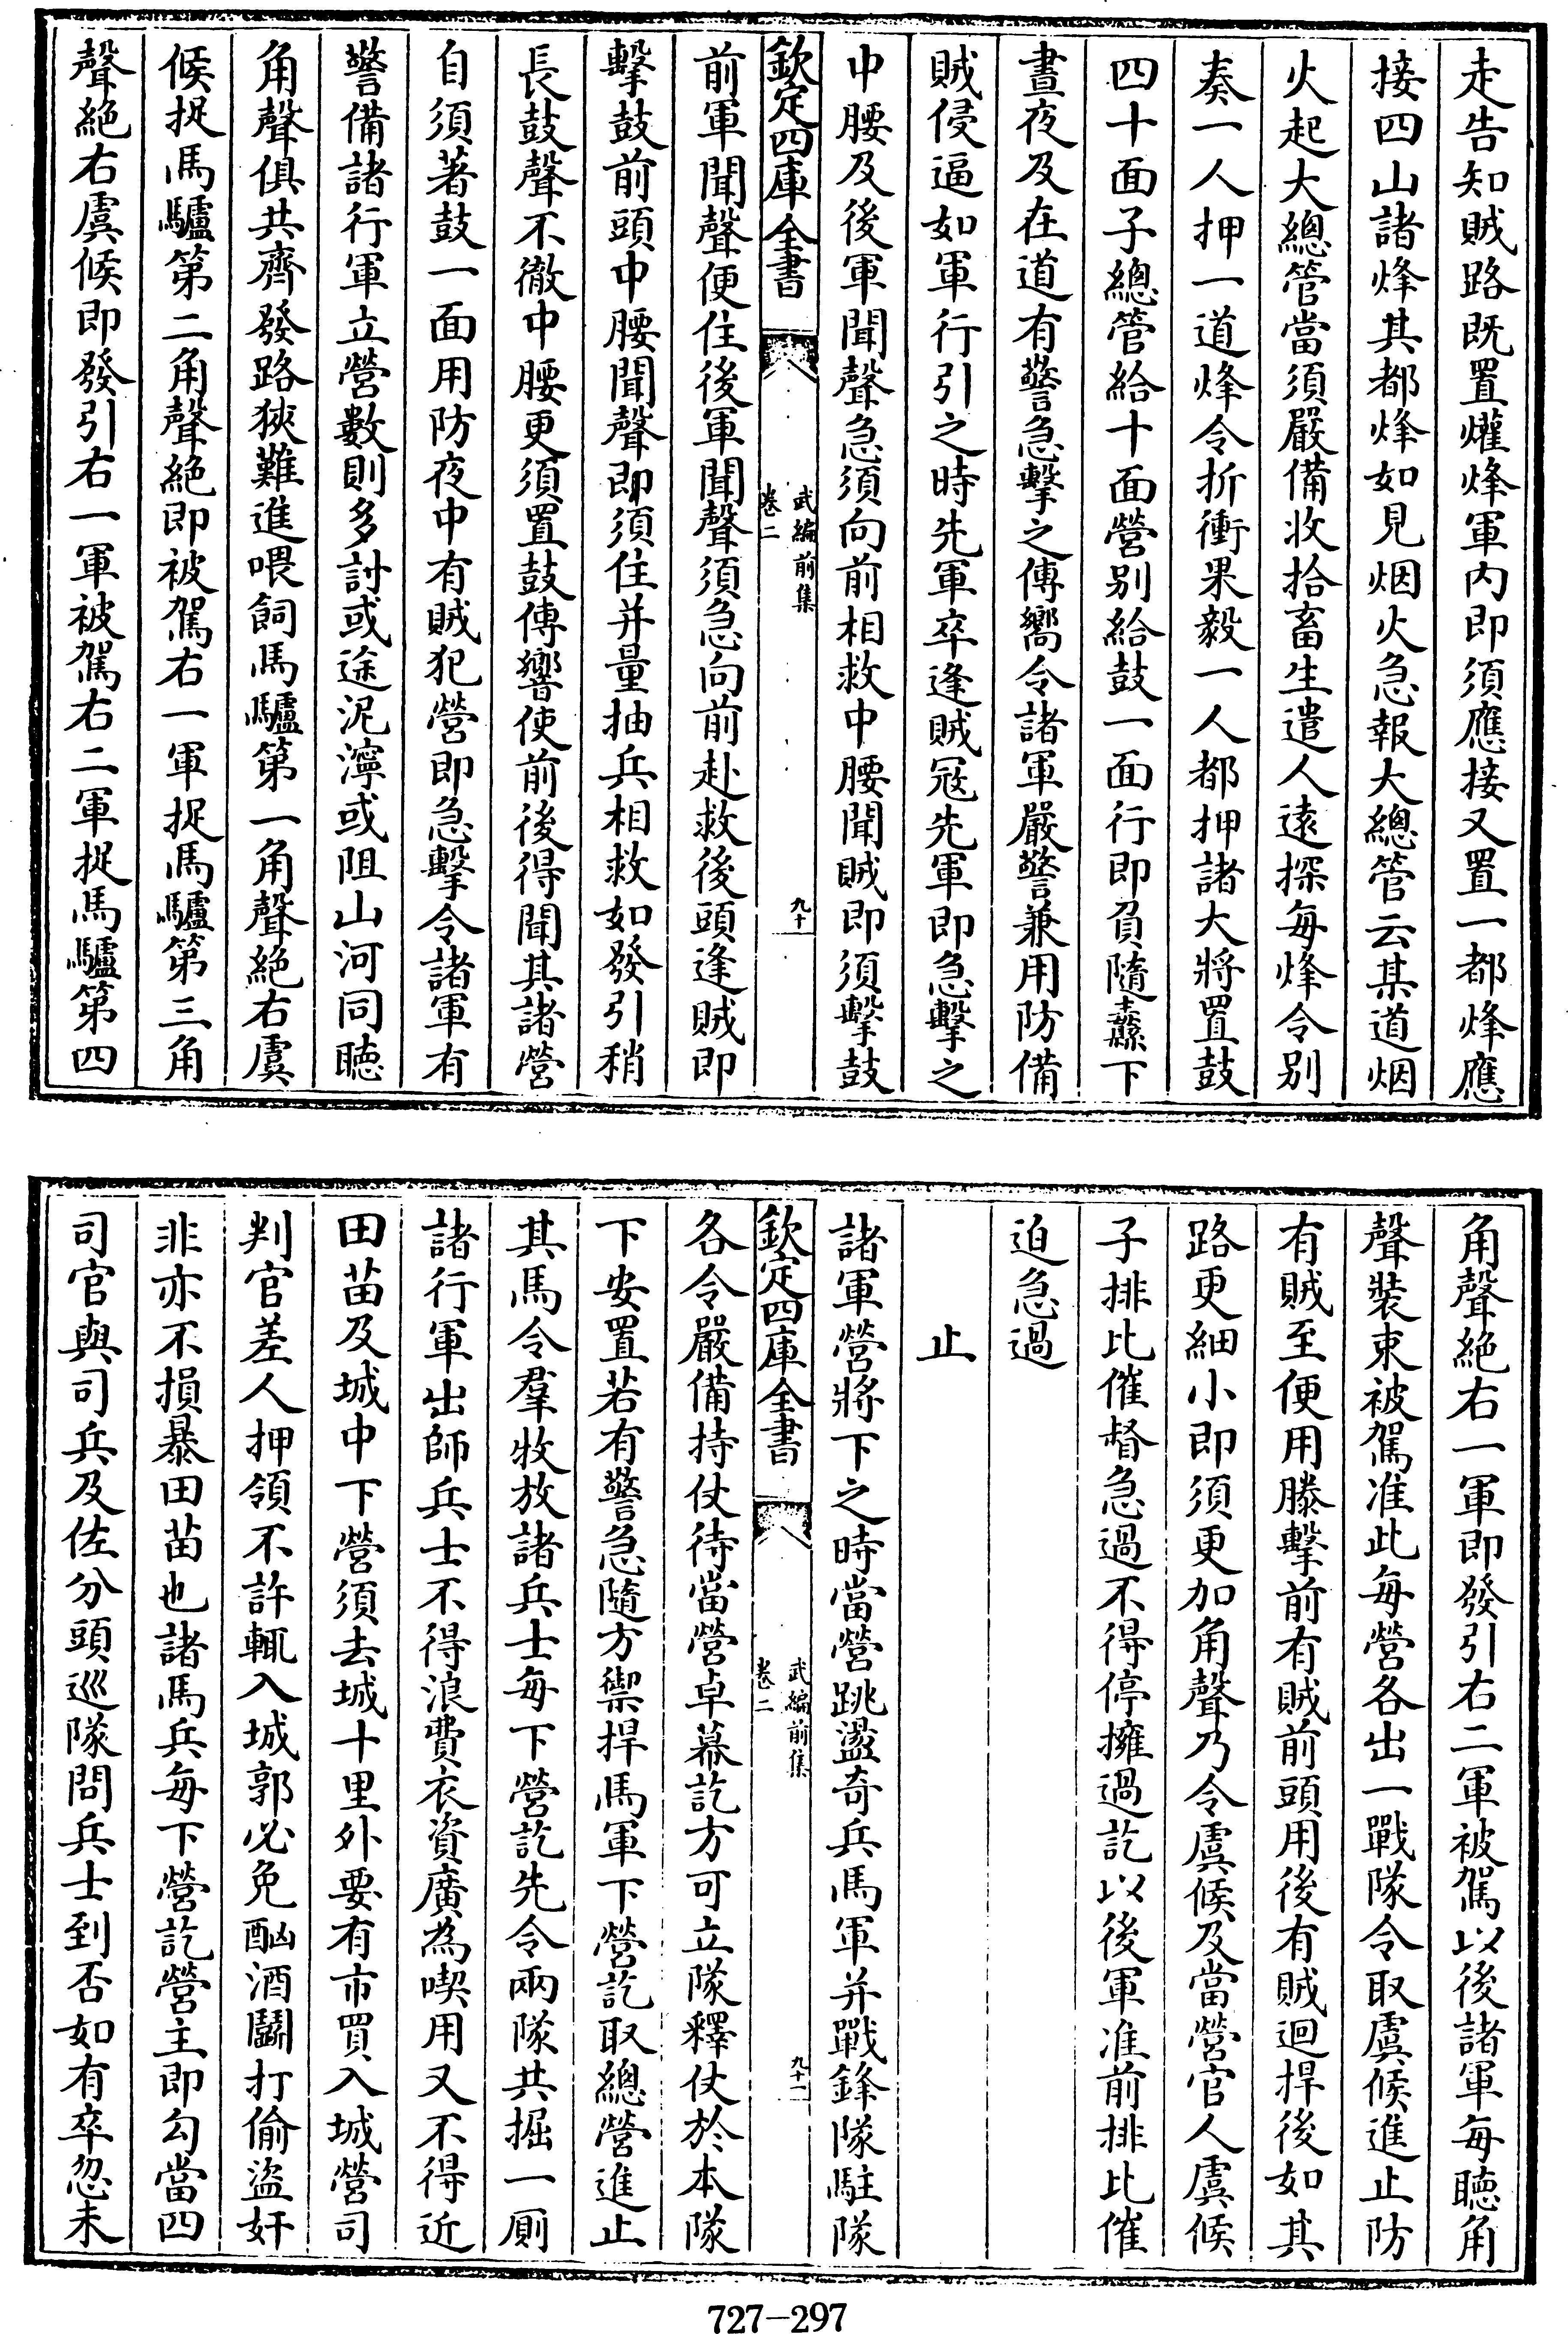 走告知賊路既置爟烽軍内即須應接又置一都烽應
接四山諸烽其都烽如見烟火急報大總管云某道烟
火起大總管當須嚴備收拾畜生遣人逺探每烽令别
奏一人押一道烽令折衝果毅一人都押諸大將置鼓
四十面子總管給十面營别給鼓一面行即負隨纛下
晝夜及在道有警急擊之傳嚮令諸軍嚴警兼用防備
賊侵逼如軍行引之時先軍卒逢賊冦先軍即急擊之
中腰及後軍聞聲急須向前相救中腰聞賊即須擊鼓
欽定四庫全書
武編前集
卷二
九十
前軍聞聲便住後軍聞聲須急向前赴救後頭逢賊即
擊鼓前頭中腰聞聲即須住并量抽兵相救如發引稍
長鼓聲不徹中腰更須置鼓傳響使前後得聞其諸營
自須著鼓一面用防夜中有賊犯營即急擊令諸軍有
警備諸行軍立營數則多討或途泥濘或阻山河同聴
角聲俱共齊發路狹難進喂飼馬驢第一角聲絶右虞
候捉馬驢第二角聲絶即被駕右一軍捉馬驢第三角
聲絶右虞候即發引右一軍被駕右二軍捉馬驢第四
角聲絶右一軍即發引右二軍被駕以後諸軍每聴角
聲裝束被駕准此每營各出一戰隊令取虞候進止防
有賊至便用滕擊前有賊前頭用後有賊迴捍後如其
路更細小即須更加角聲乃令虞候及當營官人虞候
子排比催督急過不得停擁過訖以後軍准前排比催
迫急過
止
諸軍營將下之時當營跳盪奇兵馬軍并戰鋒隊駐隊
欽定四庫全書
武編前集
卷二
九十一
各令嚴備持仗待當營卓幕訖方可立隊釋仗於本隊
下安置若有警急隨方禦捍馬軍下營訖取總營進止
其馬令羣牧放諸兵士每下營訖先令兩隊共掘一厠
諸行軍出師兵士不得浪費衣資廣為喫用又不得近
田苗及城中下營須去城十里外要有市買入城營司
判官差人押領不許輒入城郭必免酗酒鬬打偷盜奸
非亦不損暴田苗也諸馬兵每下營訖營主即勾當四
司官與司兵及佐分頭巡隊問兵士到否如有卒忽未
727-297